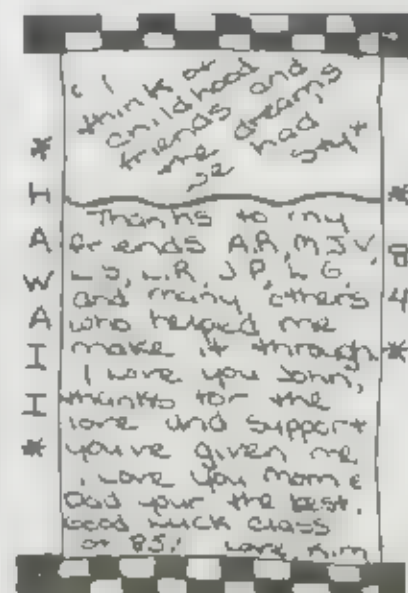 I
think of
childhood and
friends dreams
me had
Styx
* HAWAII *
* 84 *
Thanks to my
friends A.R, M.J.V,
L.S, L.R, J.P, L.G,
and many others
who helped me
make it through
I love you John,
thanks for the
love and support
you've given me
I love you Mom &
Dad your the best.
Good luck class
of 85! Love Kim